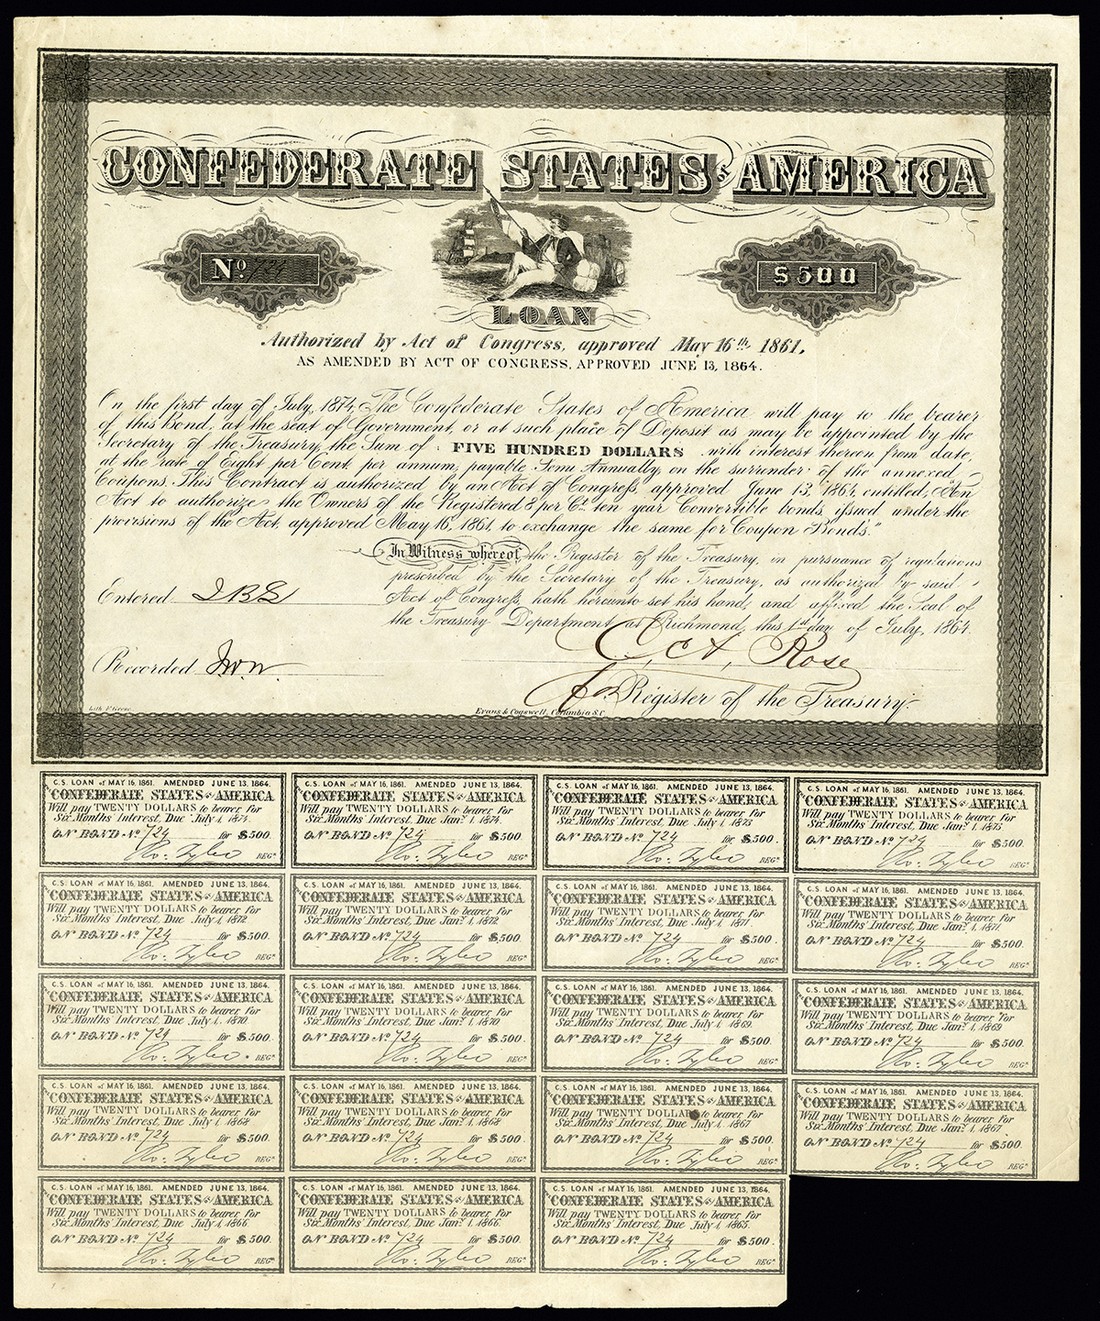 CONFEDERATE STATES OF AMERICA
No. 724
$500
LOAN
Authorized by Act of Congress, approved May 16th, 1861,
AS AMENDED BY ACT OF CONGRESS, APPROVED JUNE 13, 1864.
On the first day of July, 1874, The Confederate States of America will pay to the bearer
of this Bond, at the seat of Government, or at such place of Deposit as may be appointed by the
Secretary of the Treasury, the Sum of FIVE HUNDRED DOLLARS with interest thereon from date,
at the rate of Eight per Cent. per annum, payable Semi Annually, on the surrender of the annexed
Coupons. This Contract is authorized by an Act of Congress, approved June 13, 1864, entitled, "An
Act to authorize the Owners of the Registered 8 per Ct. ten year Convertible bonds, issued under the
provisions of the Act, approved May 16, 1861, to exchange the same for Coupon Bonds."
In Witness whereof the Register of the Treasury, in pursuance of regulations
prescribed by the Secretary of the Treasury, as authorized by said
Act of Congress, hath hereunto set his hand, and affixed the Seal of
the Treasury Department, at Richmond, this 1st day of July, 1864.
Entered
Recorded
C. A. Rose
for Register of the Treasury
Evans & Cogswell, Columbia S.C.
C.S. LOAN of MAY 16, 1861. AMENDED JUNE 13, 1864.
CONFEDERATE STATES OF AMERICA
Will pay TWENTY DOLLARS to bearer for
Six Months' Interest, Due July 1, 1874.
ON BOND No. 724 for $500
Ro. Tyler REGr.
C.S. LOAN of MAY 16, 1861. AMENDED JUNE 13, 1864.
CONFEDERATE STATES OF AMERICA
Will pay TWENTY DOLLARS to bearer for
Six Months' Interest, Due Jany. 1, 1874.
ON BOND No. 724 for $500
Ro. Tyler REGr.
C.S. LOAN of MAY 16, 1861. AMENDED JUNE 13, 1864.
CONFEDERATE STATES OF AMERICA
Will pay TWENTY DOLLARS to bearer for
Six Months' Interest, Due July 1, 1873
ON BOND No. 724 for $500.
Ro. Tyler REGr.
C.S. LOAN of MAY 16, 1861. AMENDED JUNE 13, 1864.
CONFEDERATE STATES OF AMERICA
Will pay TWENTY DOLLARS to bearer for
Six Months' Interest, Due Jany. 1, 1873
ON BOND No. 724 for $500.
Ro. Tyler REGr.
C.S. LOAN of MAY 16, 1861. AMENDED JUNE 13, 1864.
CONFEDERATE STATES OF AMERICA
Will pay TWENTY DOLLARS to bearer for
Six Months' Interest, Due July 1, 1872
ON BOND No. 724 for $500.
Ro. Tyler REGr.
C.S. LOAN of MAY 16, 1861. AMENDED JUNE 13, 1864.
CONFEDERATE STATES OF AMERICA
Will pay TWENTY DOLLARS to bearer for
Six Months' Interest, Due Jany. 1, 1872
ON BOND No. 724 for $500.
Ro. Tyler REGr.
C.S. LOAN of MAY 16, 1861. AMENDED JUNE 13, 1864.
CONFEDERATE STATES OF AMERICA
Will pay TWENTY DOLLARS to bearer for
Six Months' Interest, Due July 1, 1871.
ON BOND No. 724 for $500.
Ro. Tyler REGr.
C.S. LOAN of MAY 16, 1861. AMENDED JUNE 13, 1864.
CONFEDERATE STATES OF AMERICA
Will pay TWENTY DOLLARS to bearer for
Six Months' Interest, Due Jany. 1, 1871.
ON BOND No. 724 for $500.
Ro. Tyler REGr.
C.S. LOAN of MAY 16, 1861. AMENDED JUNE 13, 1864.
CONFEDERATE STATES OF AMERICA
Will pay TWENTY DOLLARS to bearer for
Six Months' Interest, Due July 1, 1870.
ON BOND No. 724 for $500.
Ro. Tyler REGr.
C.S. LOAN of MAY 16, 1861. AMENDED JUNE 13, 1864.
CONFEDERATE STATES OF AMERICA
Will pay TWENTY DOLLARS to bearer for
Six Months' Interest, Due Jany. 1, 1870
ON BOND No. 724 for $500.
Ro. Tyler REGr.
C.S. LOAN of MAY 16, 1861. AMENDED JUNE 13, 1864.
CONFEDERATE STATES OF AMERICA
Will pay TWENTY DOLLARS to bearer for
Six Months' Interest, Due July 1, 1869.
ON BOND No. 724 for $500.
Ro. Tyler REGr.
C.S. LOAN of MAY 16, 1861. AMENDED JUNE 13, 1864.
CONFEDERATE STATES OF AMERICA
Will pay TWENTY DOLLARS to bearer for
Six Months' Interest, Due Jany. 1, 1869
ON BOND No. 724 for $500.
Ro. Tyler REGr.
C.S. LOAN of MAY 16, 1861. AMENDED JUNE 13, 1864.
CONFEDERATE STATES OF AMERICA
Will pay TWENTY DOLLARS to bearer for
Six Months' Interest, Due July 1, 1868
ON BOND No. 724 for $500.
Ro. Tyler REGr.
C.S. LOAN of MAY 16, 1861. AMENDED JUNE 13, 1864.
CONFEDERATE STATES OF AMERICA
Will pay TWENTY DOLLARS to bearer for
Six Months' Interest, Due Jany. 1, 1868
ON BOND No. 724 for $500.
Ro. Tyler REGr.
C.S. LOAN of MAY 16, 1861. AMENDED JUNE 13, 1864.
CONFEDERATE STATES OF AMERICA
Will pay TWENTY DOLLARS to bearer for
Six Months' Interest, Due July 1, 1867
ON BOND No. 724 for $500.
Ro. Tyler REGr.
C.S. LOAN of MAY 16, 1861. AMENDED JUNE 13, 1864.
CONFEDERATE STATES OF AMERICA
Will pay TWENTY DOLLARS to bearer for
Six Months' Interest, Due Jany. 1, 1867.
ON BOND No. 724 for $500.
Ro. Tyler REGr.
C.S. LOAN of MAY 16, 1861. AMENDED JUNE 13, 1864.
CONFEDERATE STATES OF AMERICA
Will pay TWENTY DOLLARS to bearer for
Six Months' Interest, Due July 1, 1866
ON BOND No. 724 for $500.
Ro. Tyler REGr.
C.S. LOAN of MAY 16, 1861. AMENDED JUNE 13, 1864.
CONFEDERATE STATES OF AMERICA
Will pay TWENTY DOLLARS to bearer for
Six Months' Interest, Due Jany. 1, 1866.
ON BOND No. 724 for $500.
Ro. Tyler REGr.
C.S. LOAN of MAY 16, 1861. AMENDED JUNE 13, 1864.
CONFEDERATE STATES OF AMERICA
Will pay TWENTY DOLLARS to bearer for
Six Months' Interest, Due July 1, 1865.
ON BOND No. 724 for $500.
Ro. Tyler REGr.